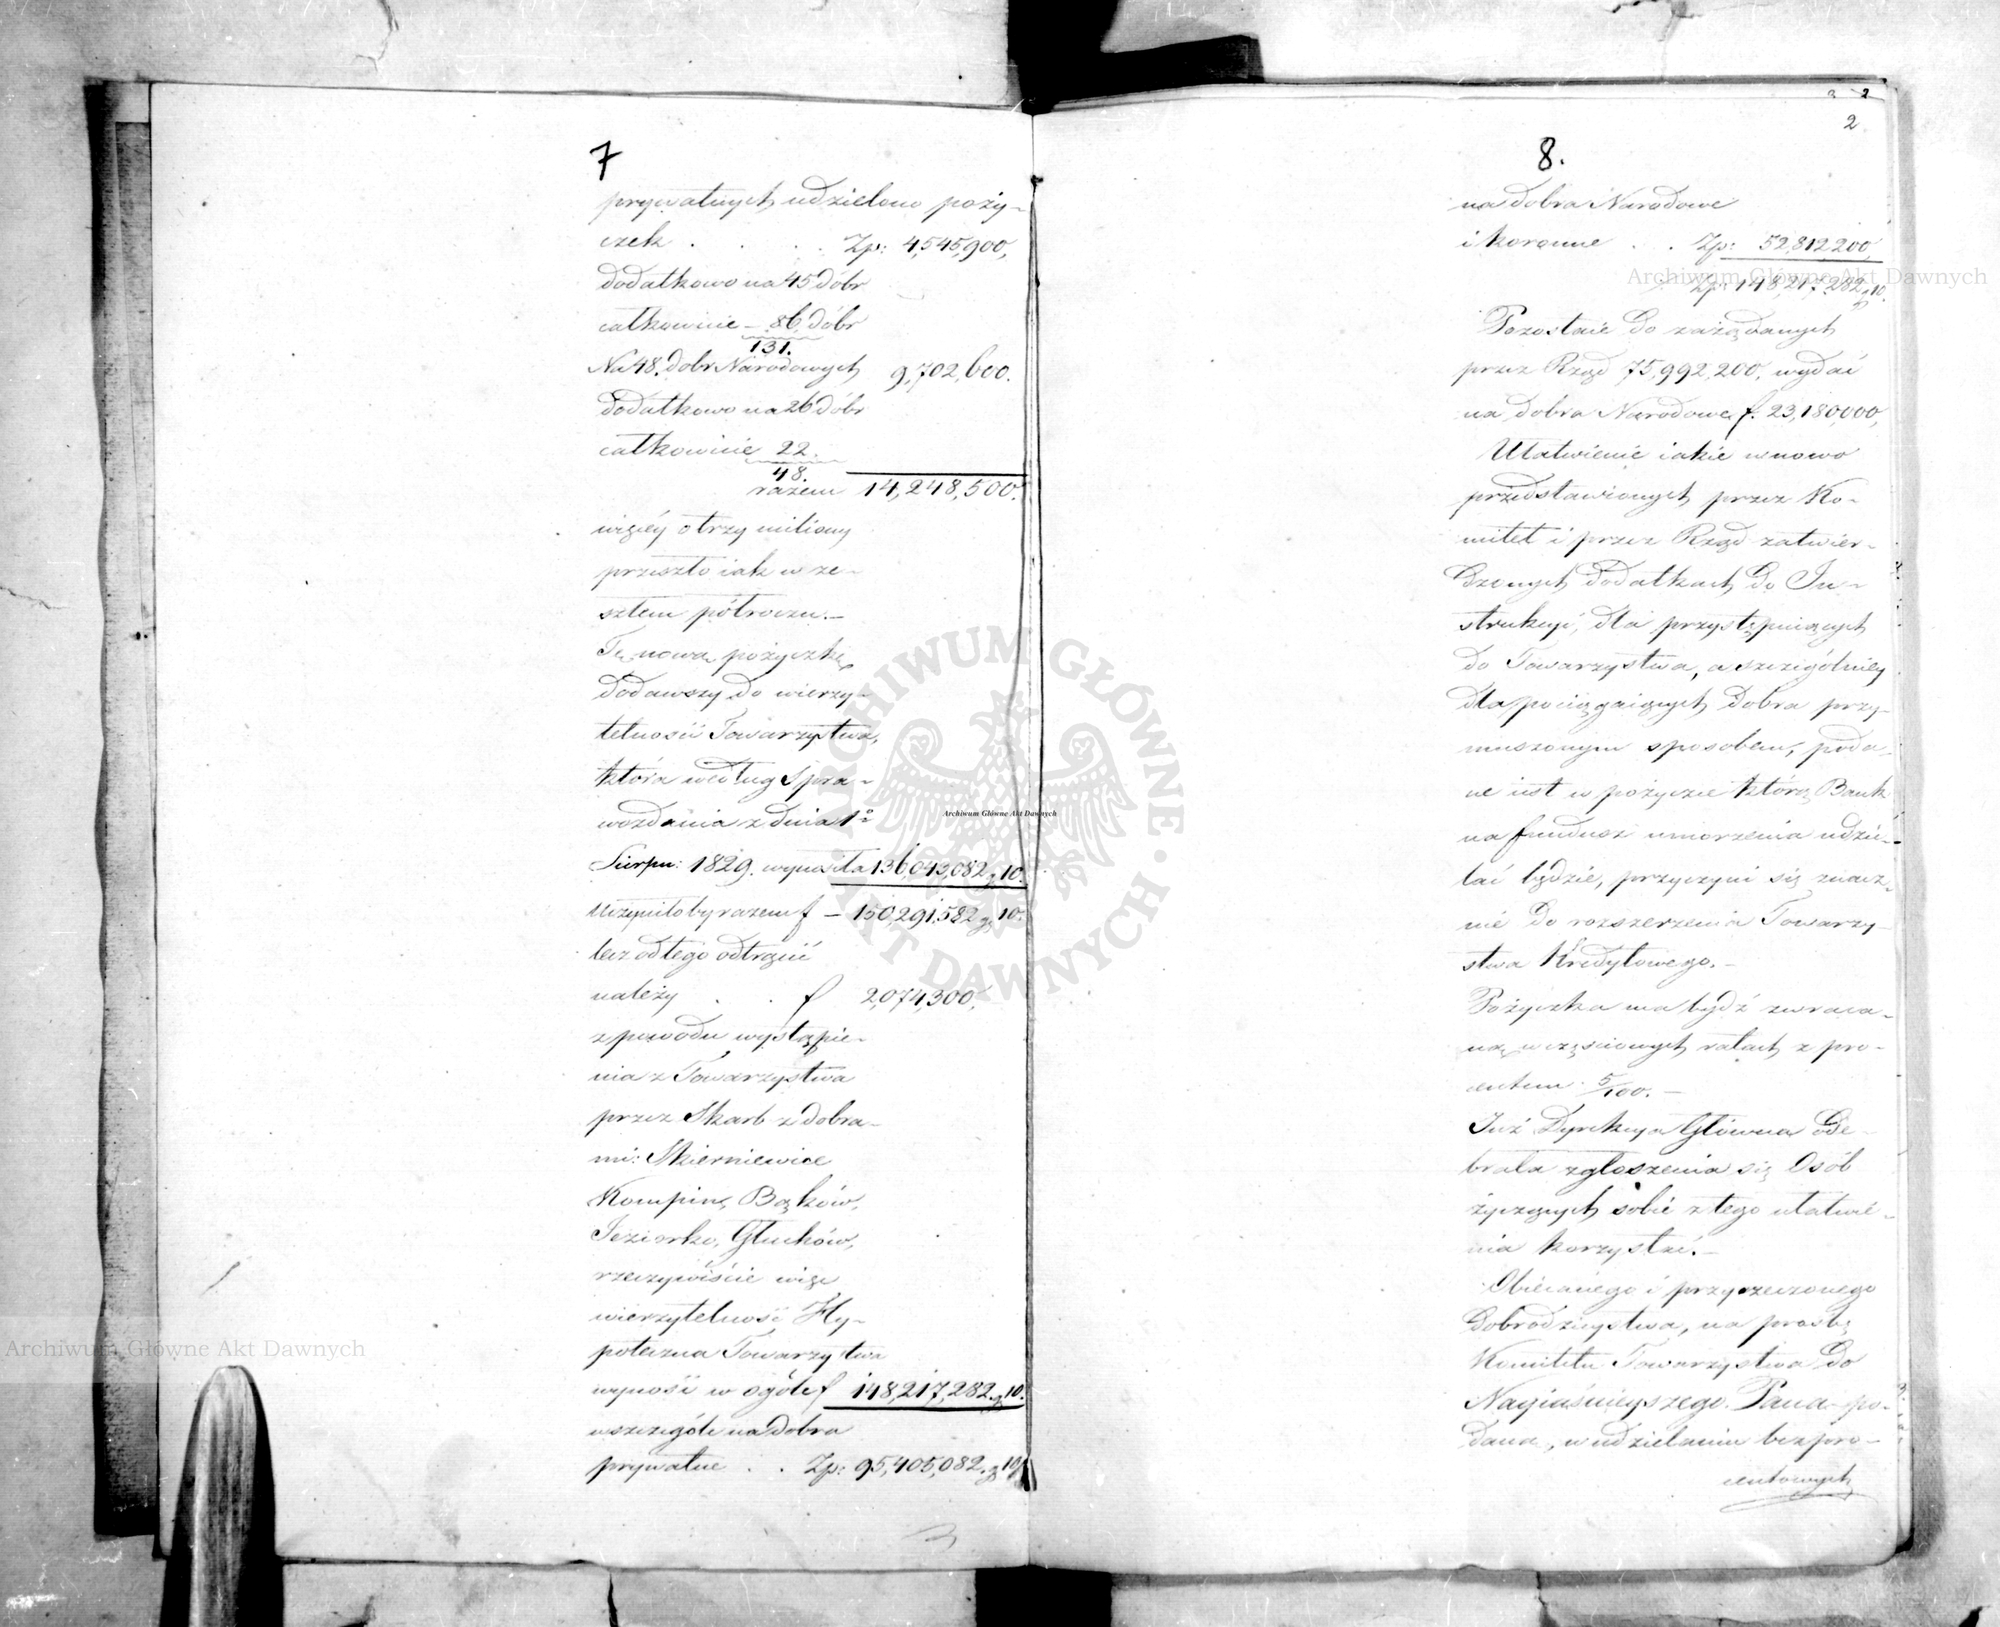 7
prywatnych udzielono poży-
czek . . . Zp: 4,545,900,
dodatkowo na 45 dóbr
całkowicie – 86 dóbr
131.
Na 48. dobr Narodowych 9,702,600.
dodatkowo na 26 dóbr
całkowicie 22.
48.
razem 14,248,500.
więcéy o trzy miliony
przeszło iak w ze-
szłem półroczu.–
Tę nową pożyczkę
dodawszy do wierzy-
telności Towarzystwa,
która według Spra-
wozdania z dnia 1o
Sierpn: 1829. wynosiła 136,043,082 g 10.
Uczyniłoby razem f – 150,291,582 g 10.
lecz od tego odtrącić
należy . . f 2,074,300,
z powodu wystąpie-
nia z Towarzystwa
przez Skarb z dobra-
mi: Skierniewice
Kompinę, Bąków,
Jeziorko, Głuchów,
rzeczywiście więc
wierzytelność Hy-
poteczna Towarzystwa
wynosi w ogóle f 148,217,282. g 10.
wszczególe na dobra
prywatne . . Zp: 95,405,082. g 10
3 2
2
8.
na dobra Narodowe
i koronne . . Zp: 52,812,200,
Zp: 148,217,282 g 10.
Pozostaie do zażądanych
przez Rząd 75,992,200, wydać
na dobra Narodowe f. 23,180,000,
Ułatwienie iakie w nowo
przedstawionych przez Ko-
mitet i przez Rząd zatwier-
dzonych dodatkach do In-
strukcyi, dla przystępuiących
do Towarzystwa, a szczególniey
dla pociągaiących dobra przy-
muszonym sposobem, poda-
ne iest w pożyczce którą Bank
na fundusz umorzenia udzie-
lać będzie, przyczyni się znacz-
nie do rozszerzenia Towarzy-
stwa Kredytowego.–
Pożyczka ma bydź zwraca-
ną w częściowych ratach z pro-
centem 5/100.–
Już Dyrekcya Główna ode-
brała zgłoszenia się Osób
życzących sobie z tego ułatwie-
nia korzystać.–
Obiecanego i przyrzeczonego
Dobrodzieystwa, na prośbę
Komitetu Towarzystwa do
Nayiaśnieyszego Pana po-
daną, w udzielaniu bezpro-
centowych
Archiwum Główne Akt Dawnych
Archiwum Główne Akt Dawnych
Archiwum Główne Akt Dawnych
ARCHIWUM GŁÓWNE AKT DAWNYCH